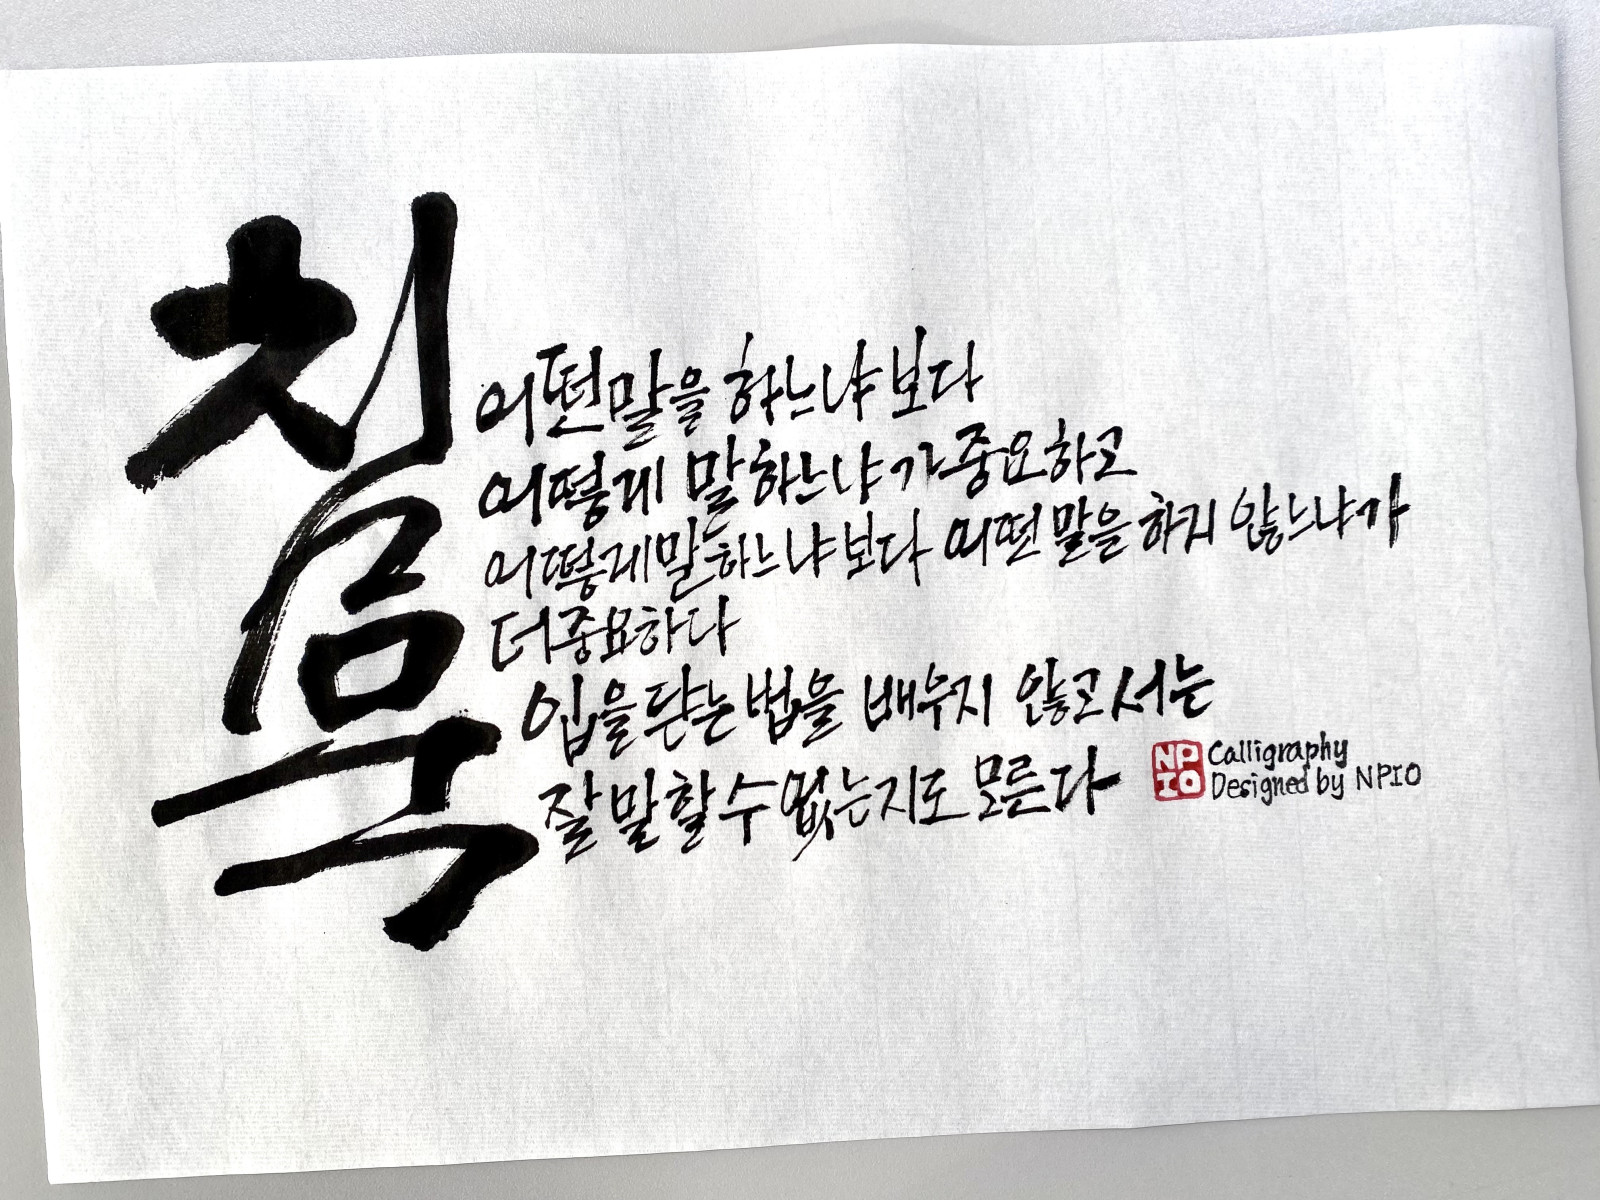 침묵
어떤 말을 하느냐 보다
어떻게 말하느냐가 중요하고
어떻게 말하느냐 보다 어떤 말을 하지 않느냐가
더 중요하다
입을 닫는 법을 배우지 않고서는
잘 말할 수 없는지도 모른다
NP
IO
Calligraphy
Designed by NPIO